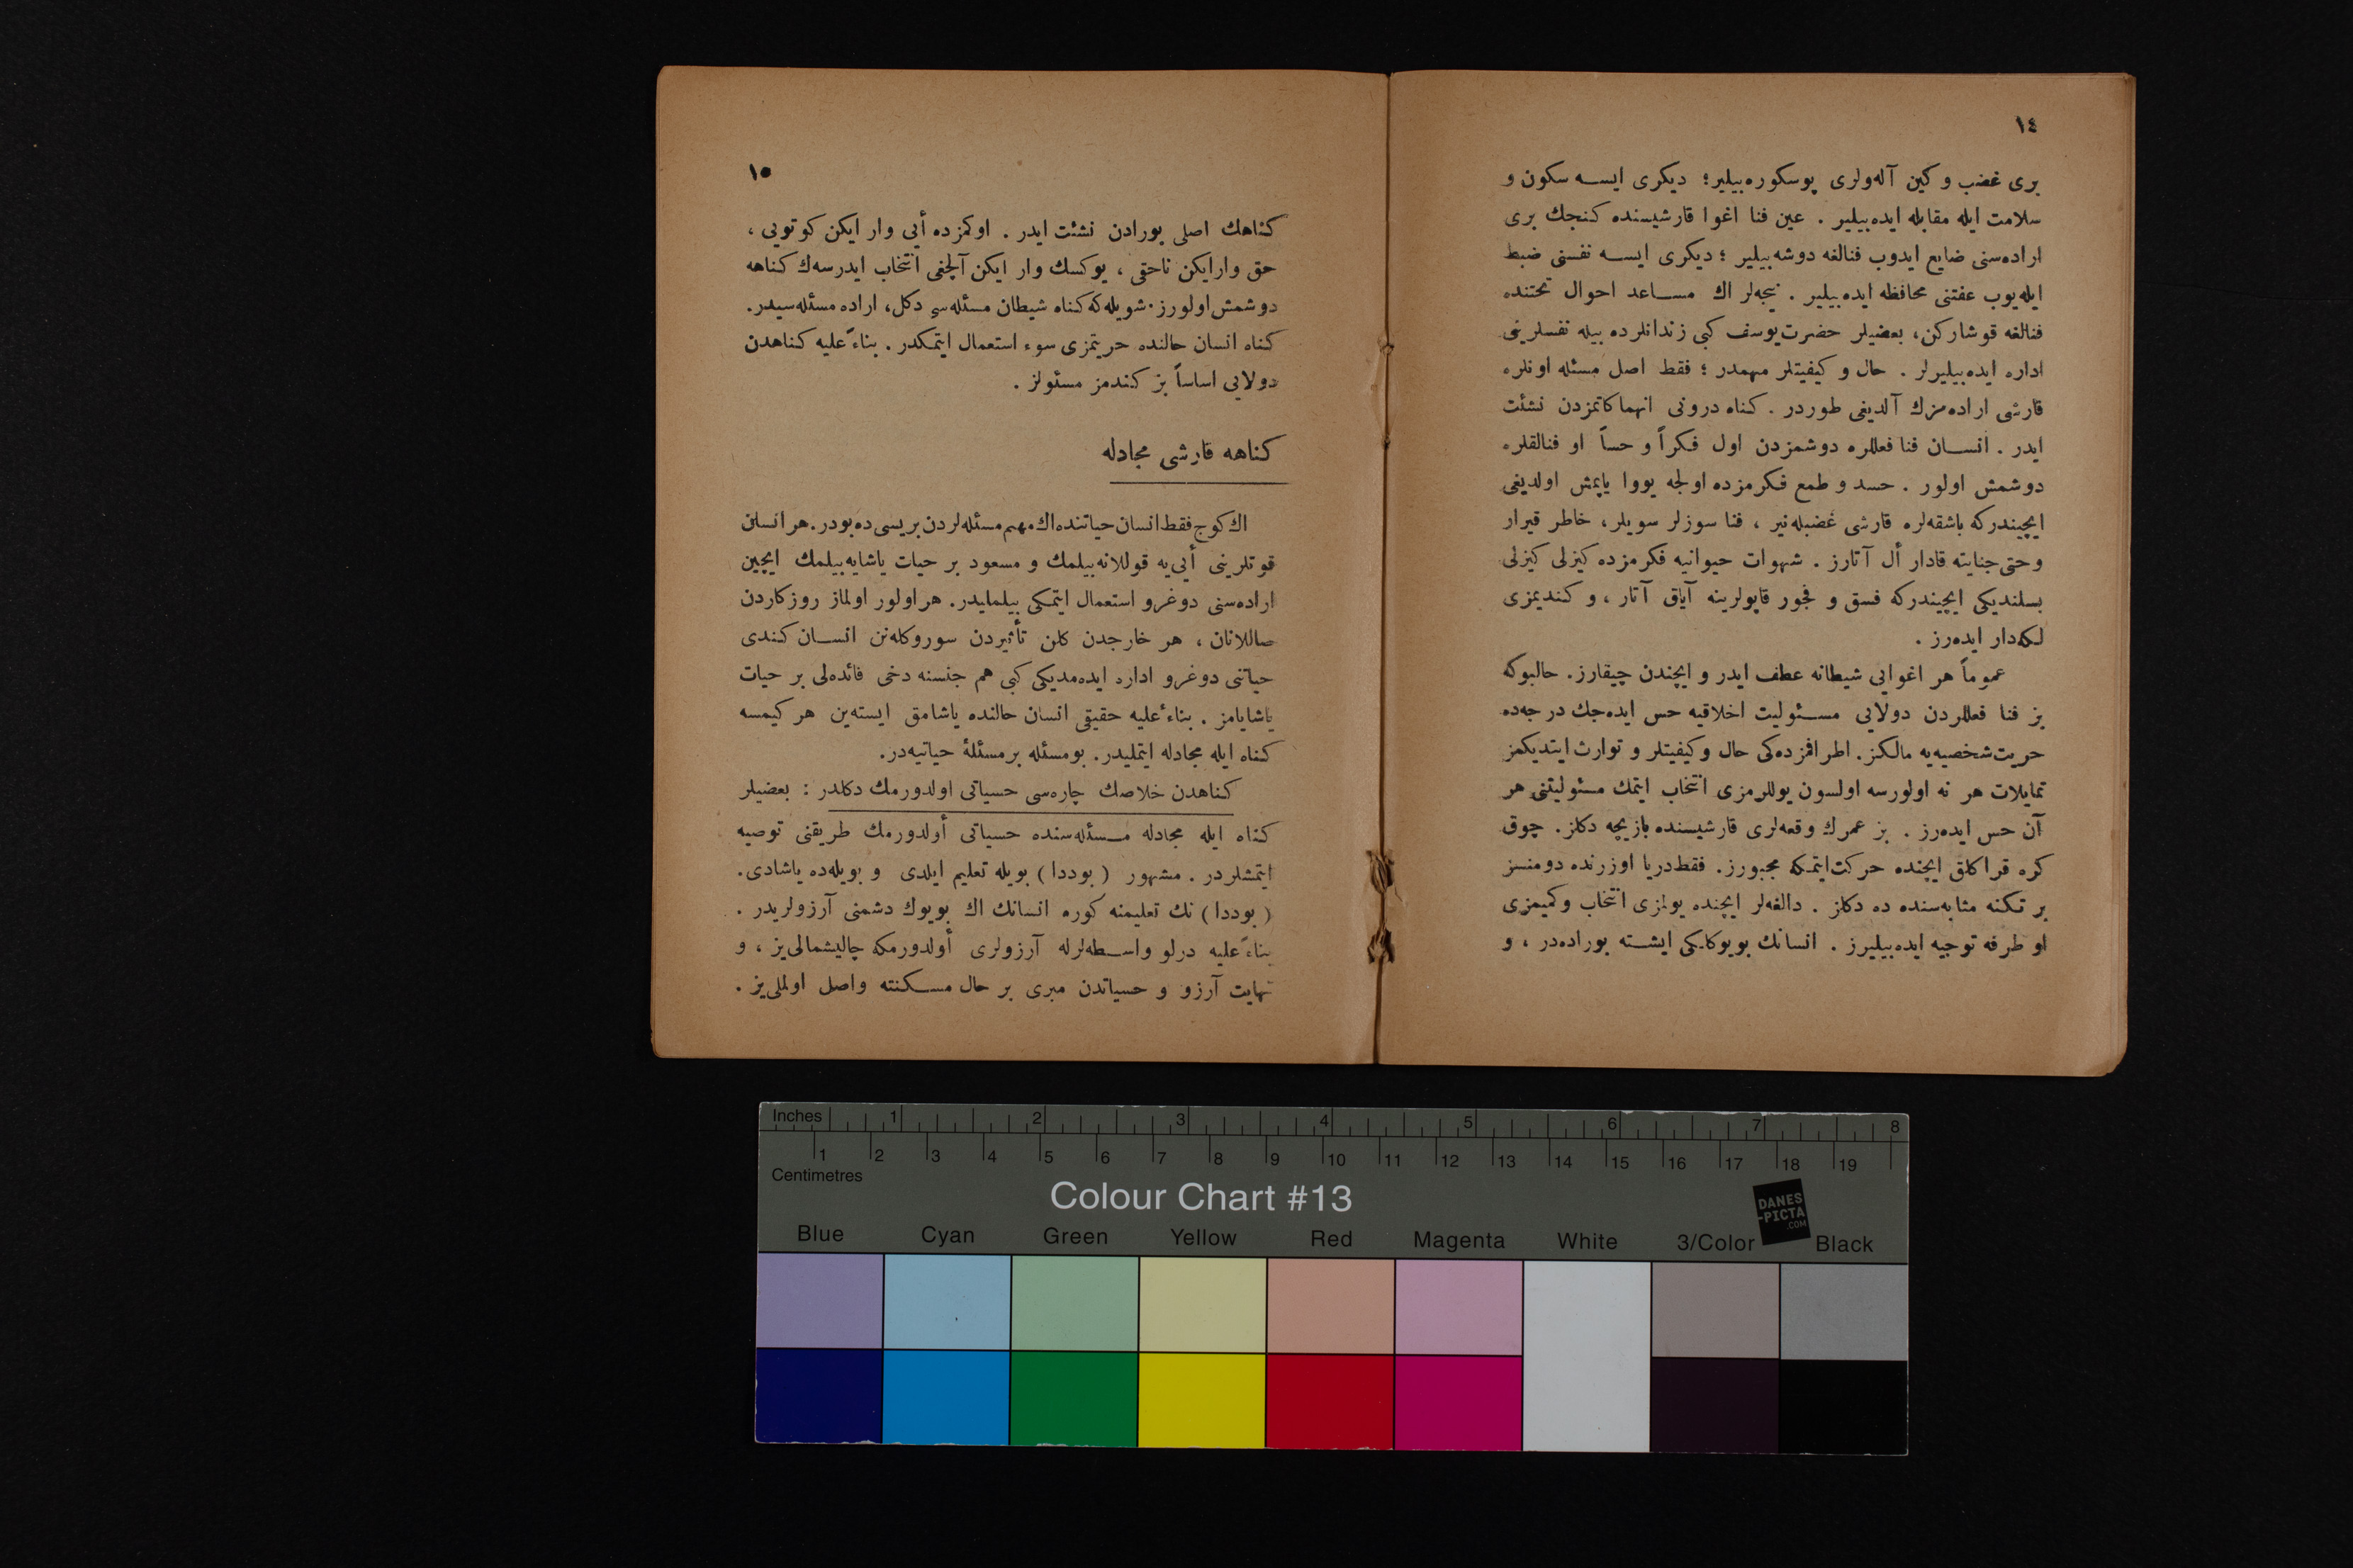 ١٤
بری غضب و كین آلەولری پوسكوره‌بیلیر؛ دیكری ایســه سكون و
سلامت ایله مقابله ایده‌بیلیر . عین فنا اغوا قارشیسنده كنجك بری
اراده‌سنی ضایع ایدوب فنالغه دوشه‌بیلیر ؛ دیكری ایســه نفسنی ضبط
ایله‌یوب عفتنی محافظه ایده‌بیلیر . نیجه‌لر اك مســاعد احوال تحتنده
فنالغه قوشاركن، بعضیلر حضرت‌یوسف كبی زندانلرده بیله نفسلرینی
اداره ایده‌بیلیرلر . حال و كیفیتلر مهمدر ؛ فقط اصل مسئله اونلره
قارشی اراده‌مزك آلدیغی طوردر . كناه درونی انهماكاتمزدن نشئت
ایدر . انســان فنا فعللره دوشمزدن اول فـكراً و حساً او فنالقلره
دوشمش اولور . حسد و طمع فـكرمزده اولجه یووا یاپمش اولدیغی
ایچیندركه باشقه‌لره قارشی غضبله‌نیر ، فنا سوزلر سویلر، خاطر قیرار
وحتی‌جنایته قادار أل آتارز . شهوات حیوانیه فكرمزده كیزلی كیزلی
بسلندیكی ایچیندركه فسق و فجور قاپولرینه آیاق آتار ، و كندیمزی
لـكه‌دار ایده‌رز .
عموماً هر اغوایی شیطانه عطف ایدر و ایچندن چیقارز. حالبوكه
بز فنا فعللردن دولایی مســئولیت اخلاقیه حس ایده‌جك درجه‌ده
حریت‌شخصیه‌یه مالكز. اطرافزده‌كی حال وكیفیتلر و توارث ایتدیكمز
تمایلات هر نه اولورسه اولسون یوللرمزی انتخاب ایتمك مسئولیتنی هر
آن حس ایده‌رز . بز عمرك وقعه‌لری قارشیسنده بازیچه دكلز. چوق
كره قراكلق ایچنده حركت‌ایتمكه مجبورز. فقط‌دریا اوزرنده دومنسز
بر تكنه مثابه‌سنده ده دكلز . دالغه‌لر ایچنده یولمزی انتخاب وكمیمزی
او طرفه توجیه ایده‌بیلیرز . انسانك بویوكلكی ایشــته بوراده‌در ، و
١٥
كناهك اصلی بورادن نشئت ایدر . اوكمزده أیی وار ایكن كوتویی ،
حق وارایكن ناحقی ، یوكسك وار ایكن آلچغی انتخاب ایدرسه‌ك كناهه
دوشمش اولورز. شویله‌كه كناه شیطان مسئله‌سی دكل، اراده مسئله‌سیدر.
كناه انسان حالنده حریتمزی سوء استعمال ایتمكدر . بناءً علیه كناهدن
دولایی اساساً بز كندمز مسئولز .
كناهه قارشی مجادله
اك كوج فقط انسان حیاتنده اك مهم مسئله‌لردن بریسی ده بودر. هر انسان
قوتلرینی أیی‌یه قوللانه‌بیلمك و مسعود بر حیات یاشایه‌بیلمك ایچین
اراده‌سنی دوغرو استعمال ایتمـكی بیلملیدر. هر اولور اولماز روزكاردن
صاللانان ، هر خارجدن كلن تأثیردن سوروكله‌نن انســان كندی
حیاتنی دوغرو اداره ایده‌مدیكی كبی هم جنسنه دخی فائده‌لی بر حیات
یاشایامز . بناءً علیه حقیقی انسان حالنده یاشامق ایسته‌ین هر كیمسه
كناه ایله مجادله ایتملیدر. بومسئله برمسئلهٔ حیاتیه‌در.
كناهدن خلاصك چاره‌سی حسیاتی اولدورمك دكلدر : بعضیلر
كناه ایله مجادله مــسئله‌سنده حسیاتی أولدورمك طریقنی توصیه
ایتمشلردر . مشهور ( بوددا ) بویله تعلیم ایلدی و بویله‌ده یاشادی.
( بوددا ) نك تعلیمنه كوره انسانك اك بویوك دشمنی آرزولریدر .
بناءً علیه درلو واســطه‌لرله آرزولری أولدورمكه چالیشمالی‌یز ، و
نهایت آرزو و حسیاتدن مبری بر حال مســكنته واصل اولملی‌یز .
Inches 1 2 3 4 5 6 7 8
1 2 3 4 5 6 7 8 9 10 11 12 13 14 15 16 17 18 19
Centimetres
Colour Chart #13
DANES
-PICTA
.COM
Blue Cyan Green Yellow Red Magenta White 3/Color Black